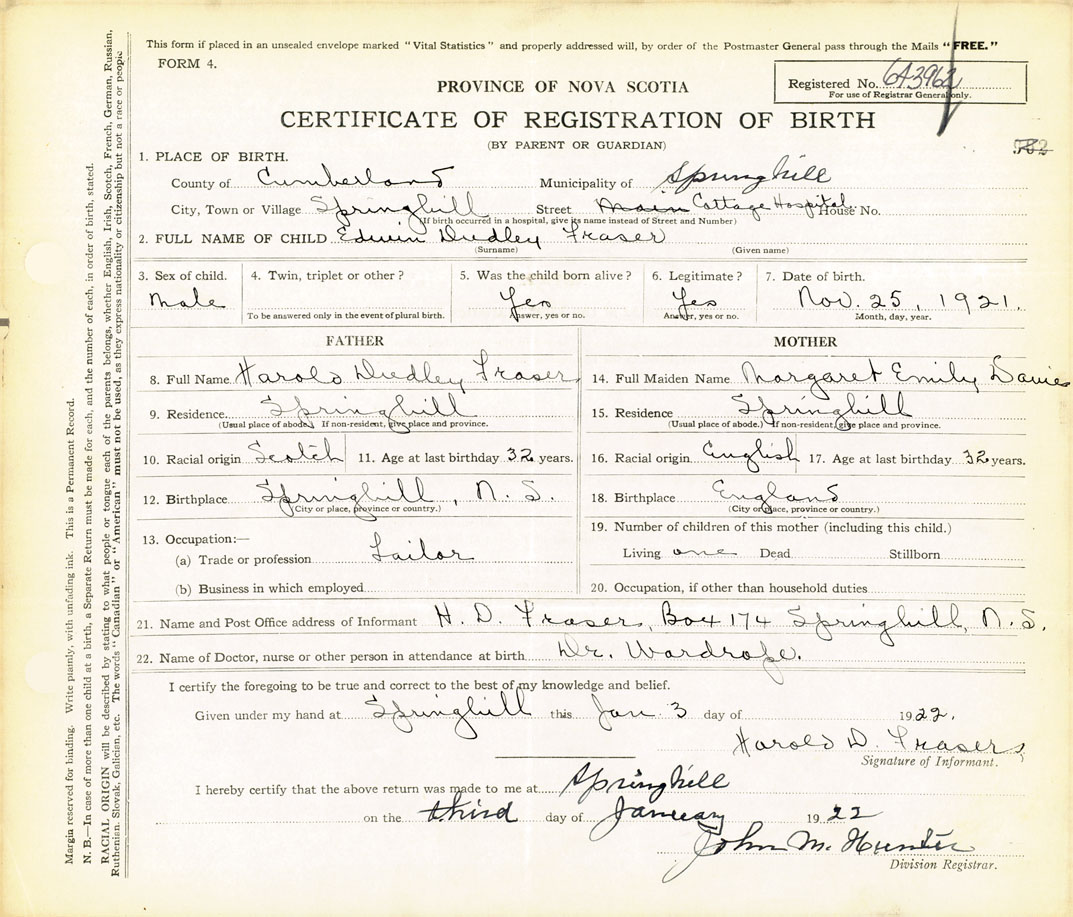 This form if placed in an unsealed envelope marked "Vital Statistics" and properly addressed will, by order of the Postmaster General pass through the Mails "FREE."
FORM 4.
Registered No. 643962
For use of Registrar General only.
PROVINCE OF NOVA SCOTIA
CERTIFICATE OF REGISTRATION OF BIRTH
(BY PARENT OR GUARDIAN)
1. PLACE OF BIRTH.
County of Cumberland Municipality of Springhill
City, Town or Village Springhill Street Main Cottage Hospital House No.
(If birth occurred in a hospital, give its name instead of Street and Number)
2. FULL NAME OF CHILD Edwin Dudley Fraser
(Surname) (Given name)
3. Sex of child. 4. Twin, triplet or other? 5. Was the child born alive? 6. Legitimate? 7. Date of birth.
Male Yes Yes Nov. 25, 1921.
To be answered only in the event of plural birth. Answer, yes or no. Answer, yes or no. Month, day, year.
FATHER MOTHER
8. Full Name Harold Dudley Fraser 14. Full Maiden Name Margaret Emily Davies
9. Residence Springhill 15. Residence Springhill
(Usual place of abode.) If non-resident, give place and province. (Usual place of abode.) If non-resident, give place and province.
10. Racial origin Scotch 11. Age at last birthday 32 years. 16. Racial origin English 17. Age at last birthday 32 years.
12. Birthplace Springhill, N. S. 18. Birthplace England
(City or place, province or country.) (City or place, province or country.)
13. Occupation:— 19. Number of children of this mother (including this child.)
(a) Trade or profession Tailor Living one Dead Stillborn
(b) Business in which employed 20. Occupation, if other than household duties
21. Name and Post Office address of Informant H. D. Fraser, Box 174 Springhill, N. S.
22. Name of Doctor, nurse or other person in attendance at birth Dr. Wardrope.
I certify the foregoing to be true and correct to the best of my knowledge and belief.
Given under my hand at Springhill this Jan. 3 day of 1922.
Harold D. Fraser
Signature of Informant.
I hereby certify that the above return was made to me at Springhill
on the third day of January 1922
John M. Hunter
Division Registrar.
Margin reserved for binding. Write plainly, with unfading ink. This is a Permanent Record.
N. B.—In case of more than one child at a birth, a Separate Return must be made for each, and the number of each, in order of birth, stated.
RACIAL ORIGIN will be described by stating to what people or tongue each of the parents belongs, whether English, Irish, Scotch, French, German, Russian,
Ruthenian, Slovak, Galician, etc. The words "Canadian" or "American" must not be used, as they express nationality or citizenship but not a race or people